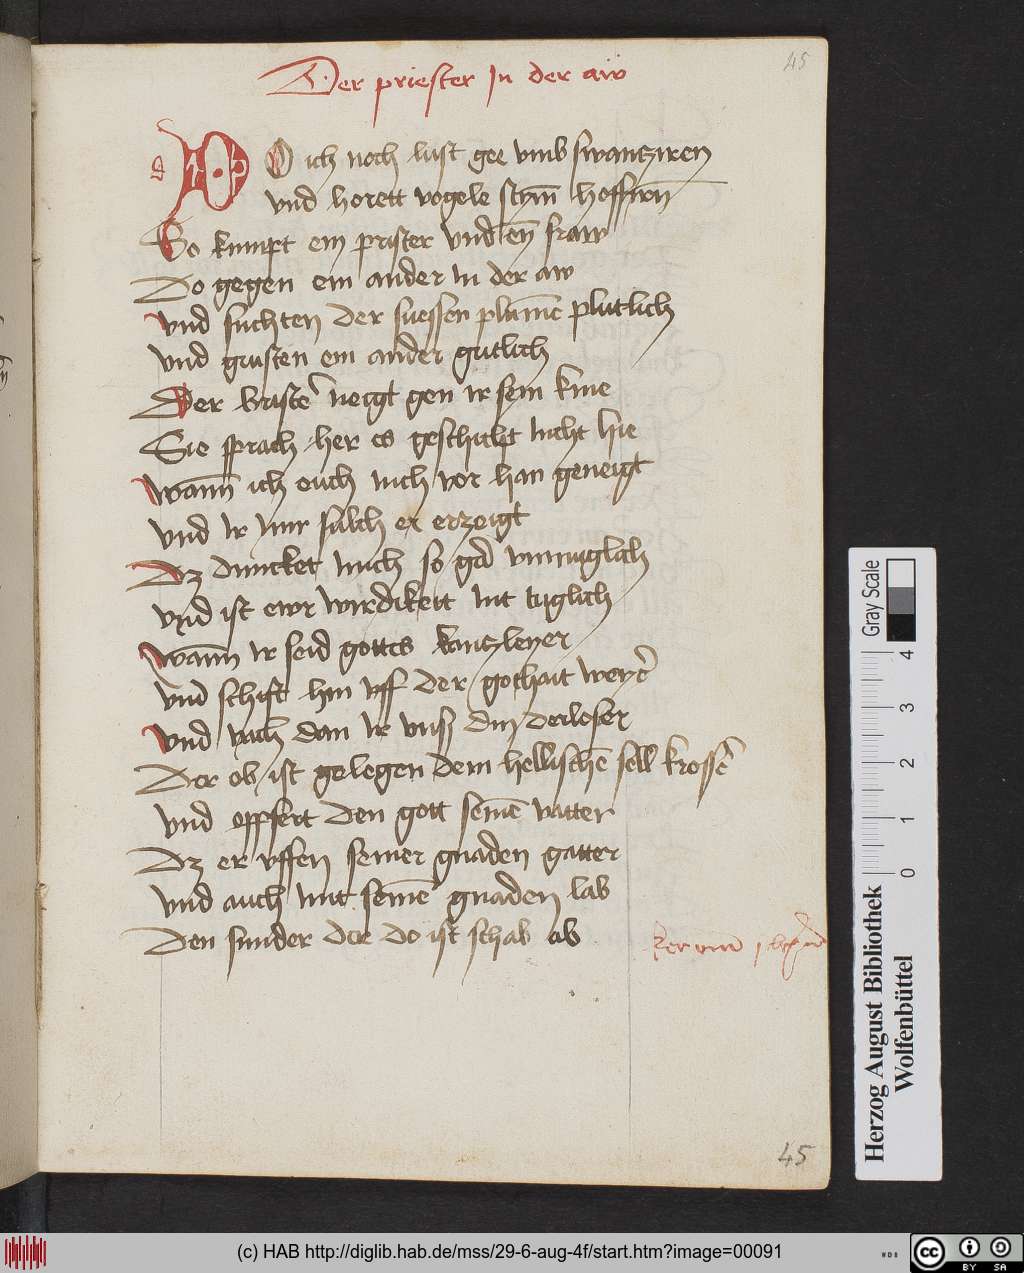 45
Der priester In der aw
DO ich noch lust gee vmb swantziren
vnd horett vogele stym̄ hoffirn̄
So kumpt ein prister vnd ein fraw
Do gegen ein ander in der aw
vnd suchten der suessen plum̄e plutlich
vnd grusten ein ander gutlich
Der brister neigt gen ir sein knie
Sie sprach her es geschicht nicht hie
wann ich euch nich vor han geneigt
vnd ir mir sulch er erzeigt
Dz duncket mich so gar vnmuglich
vnd ist ewr wirdikeit nit tuglich
wann ir seid gottes kantzleyer
vnd schift hin vff der gothait weyer
vnd dan ir vnß den derloser
Der ob ist gelegen dem hellischen
vnd oppfert den gott seinē vatter
Dz er vffen seiner gnaden gatter
vnd auch mit seinē gnaden lab
Den sunder der do ist schab ab
45
Gray Scale
0 1 2 3 4
Herzog August Bibliothek
Wolfenbüttel
(c) HAB http://diglib.hab.de/mss/29-6-aug-4f/start.htm?image=00091
WDB
cc BY SA